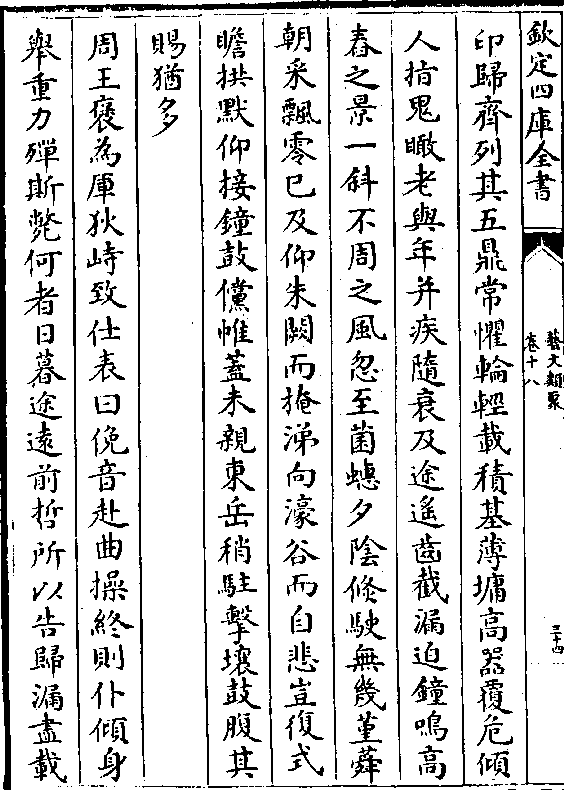 欽定四庫全書
藝文類聚
卷十八
三十四
印歸齊列其五鼎常懼輪輕載積基薄墉高器覆危傾
人揹鬼瞰老與年并疾隨衰及途遙齒截漏迫鐘鳴高
舂之景一斜不周之風忽至菌蟪夕陰倐駛無幾堇蕣
朝采飄零已及仰朱闕而掩涕向濛谷而自悲豈復式
瞻拱默仰接鐘鼓儻帷蓋未親東岳稍駐擊壤鼓腹其
賜猶多
周王褒為庫狄峙致仕表曰俛音赴曲操終則仆傾身
舉重力殫斯斃何者日暮途遠前哲所以告歸漏盡載